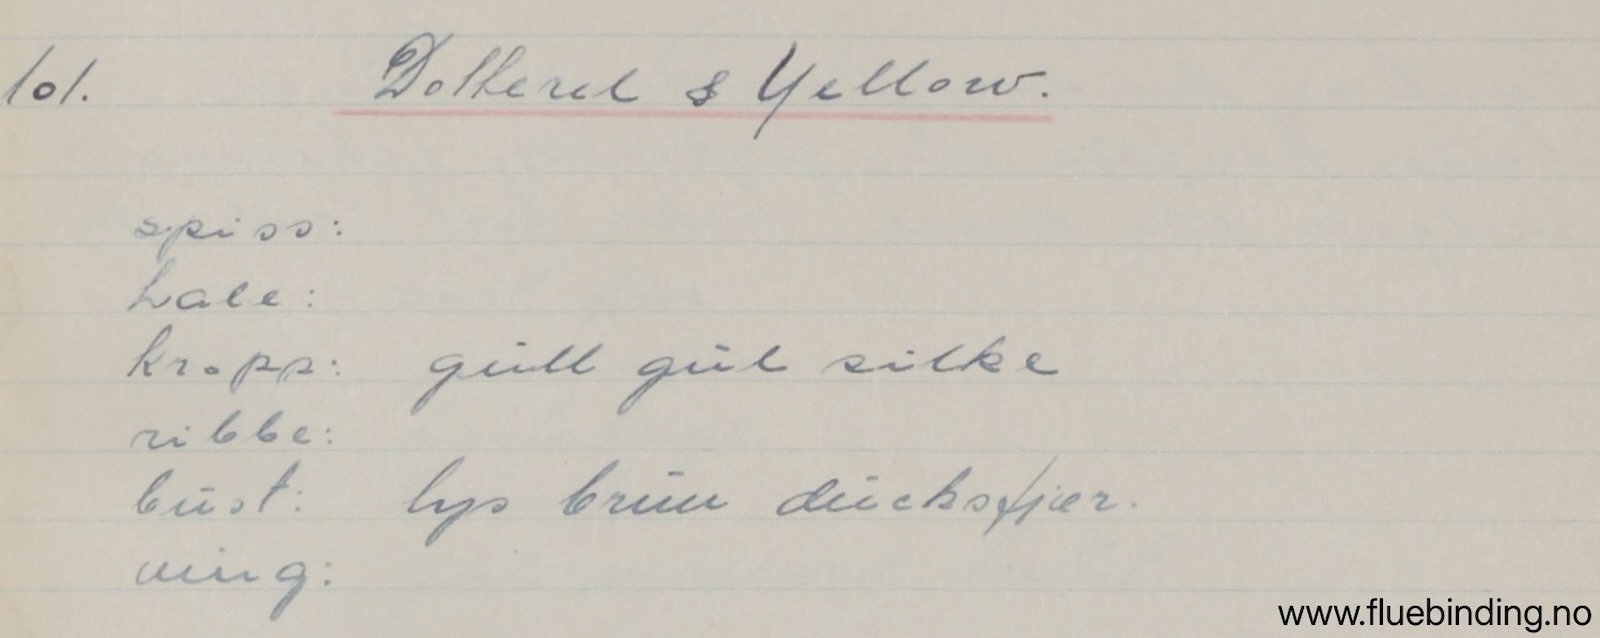 101. Dotterel & Yellow.
spiss:
hale:
kropp: gull gul silke
ribbe:
bust: lys brun ducksfjær.
ving:
www.fluebinding.no